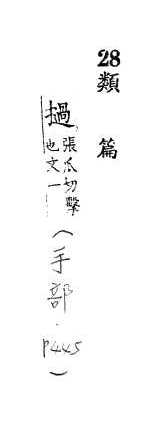 28類篇
撾張瓜切擊也文一(手部.P445)